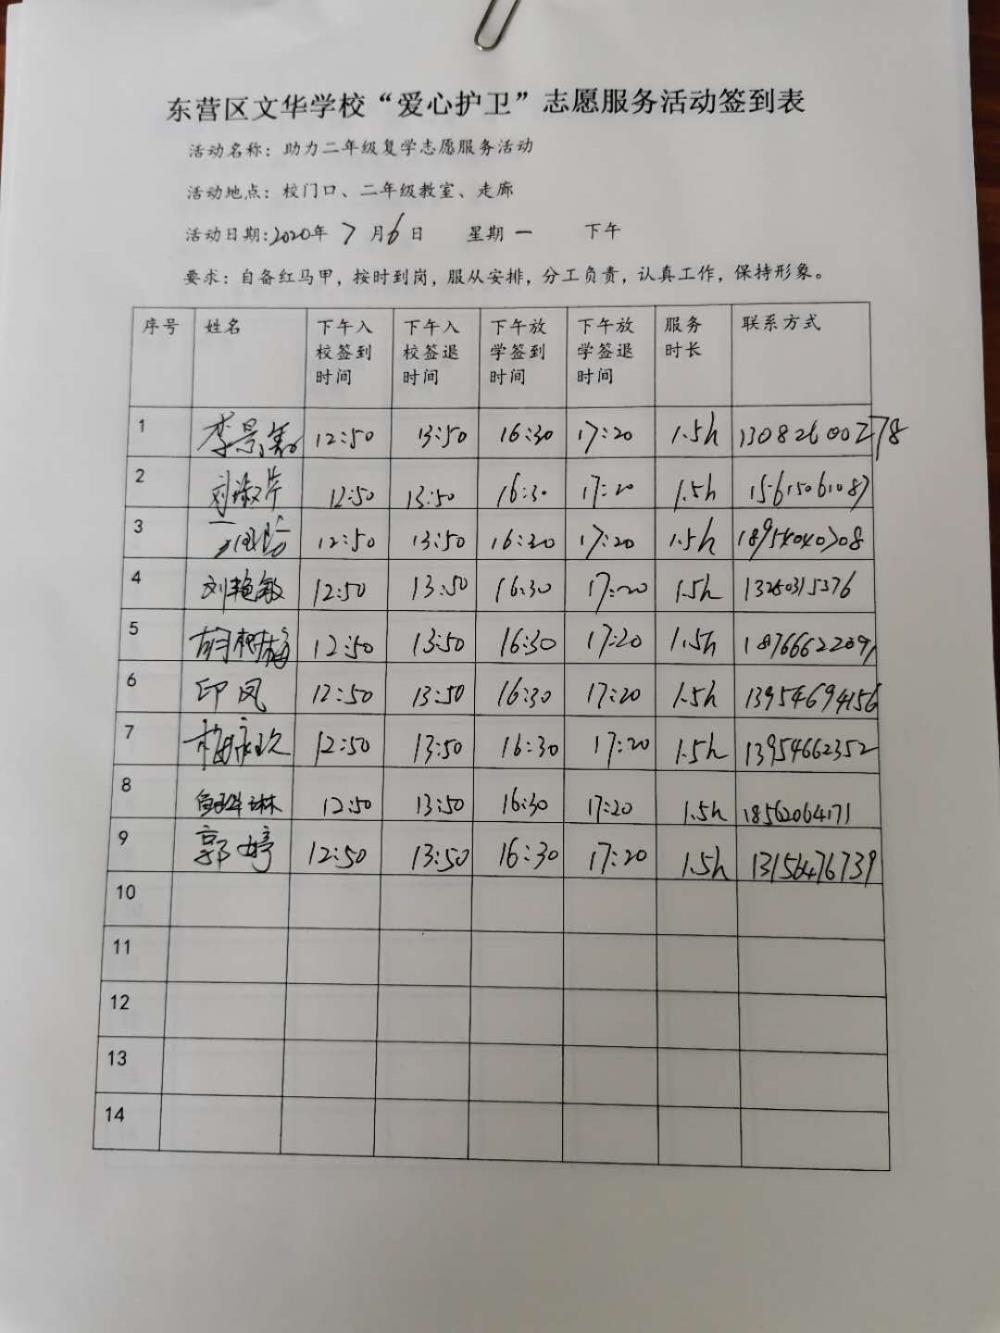 东营区文华学校“爱心护卫”志愿服务活动签到表
活动名称：助力二年级复学志愿服务活动
活动地点：校门口、二年级教室、走廊
活动日期:2020年 7 月6日 星期一 下午
要求：自备红马甲，按时到岗，服从安排，分工负责，认真工作，保持形象。
序号 姓名 下午入校签到时间 下午入校签退时间 下午放学签到时间 下午放学签退时间 服务时长 联系方式
1 李景 12:50 13:50 16:30 17:20 1.5h 13082600278
2 刘淑芹 12:50 13:50 16:30 17:20 1.5h 15615061087
3 12:50 13:50 16:30 17:20 1.5h 18954040708
4 刘艳敏 12:50 13:50 16:30 17:20 1.5h 13280315376
5 胡树梅 12:50 13:50 16:30 17:20 1.5h 18766622091
6 印凤 12:50 13:50 16:30 17:20 1.5h 13954694156
7 梅 12:50 13:50 16:30 17:20 1.5h 13954662352
8 琳 12:50 13:50 16:30 17:20 1.5h 18562064171
9 郭婷 12:50 13:50 16:30 17:20 1.5h 13156476739
10
11
12
13
14